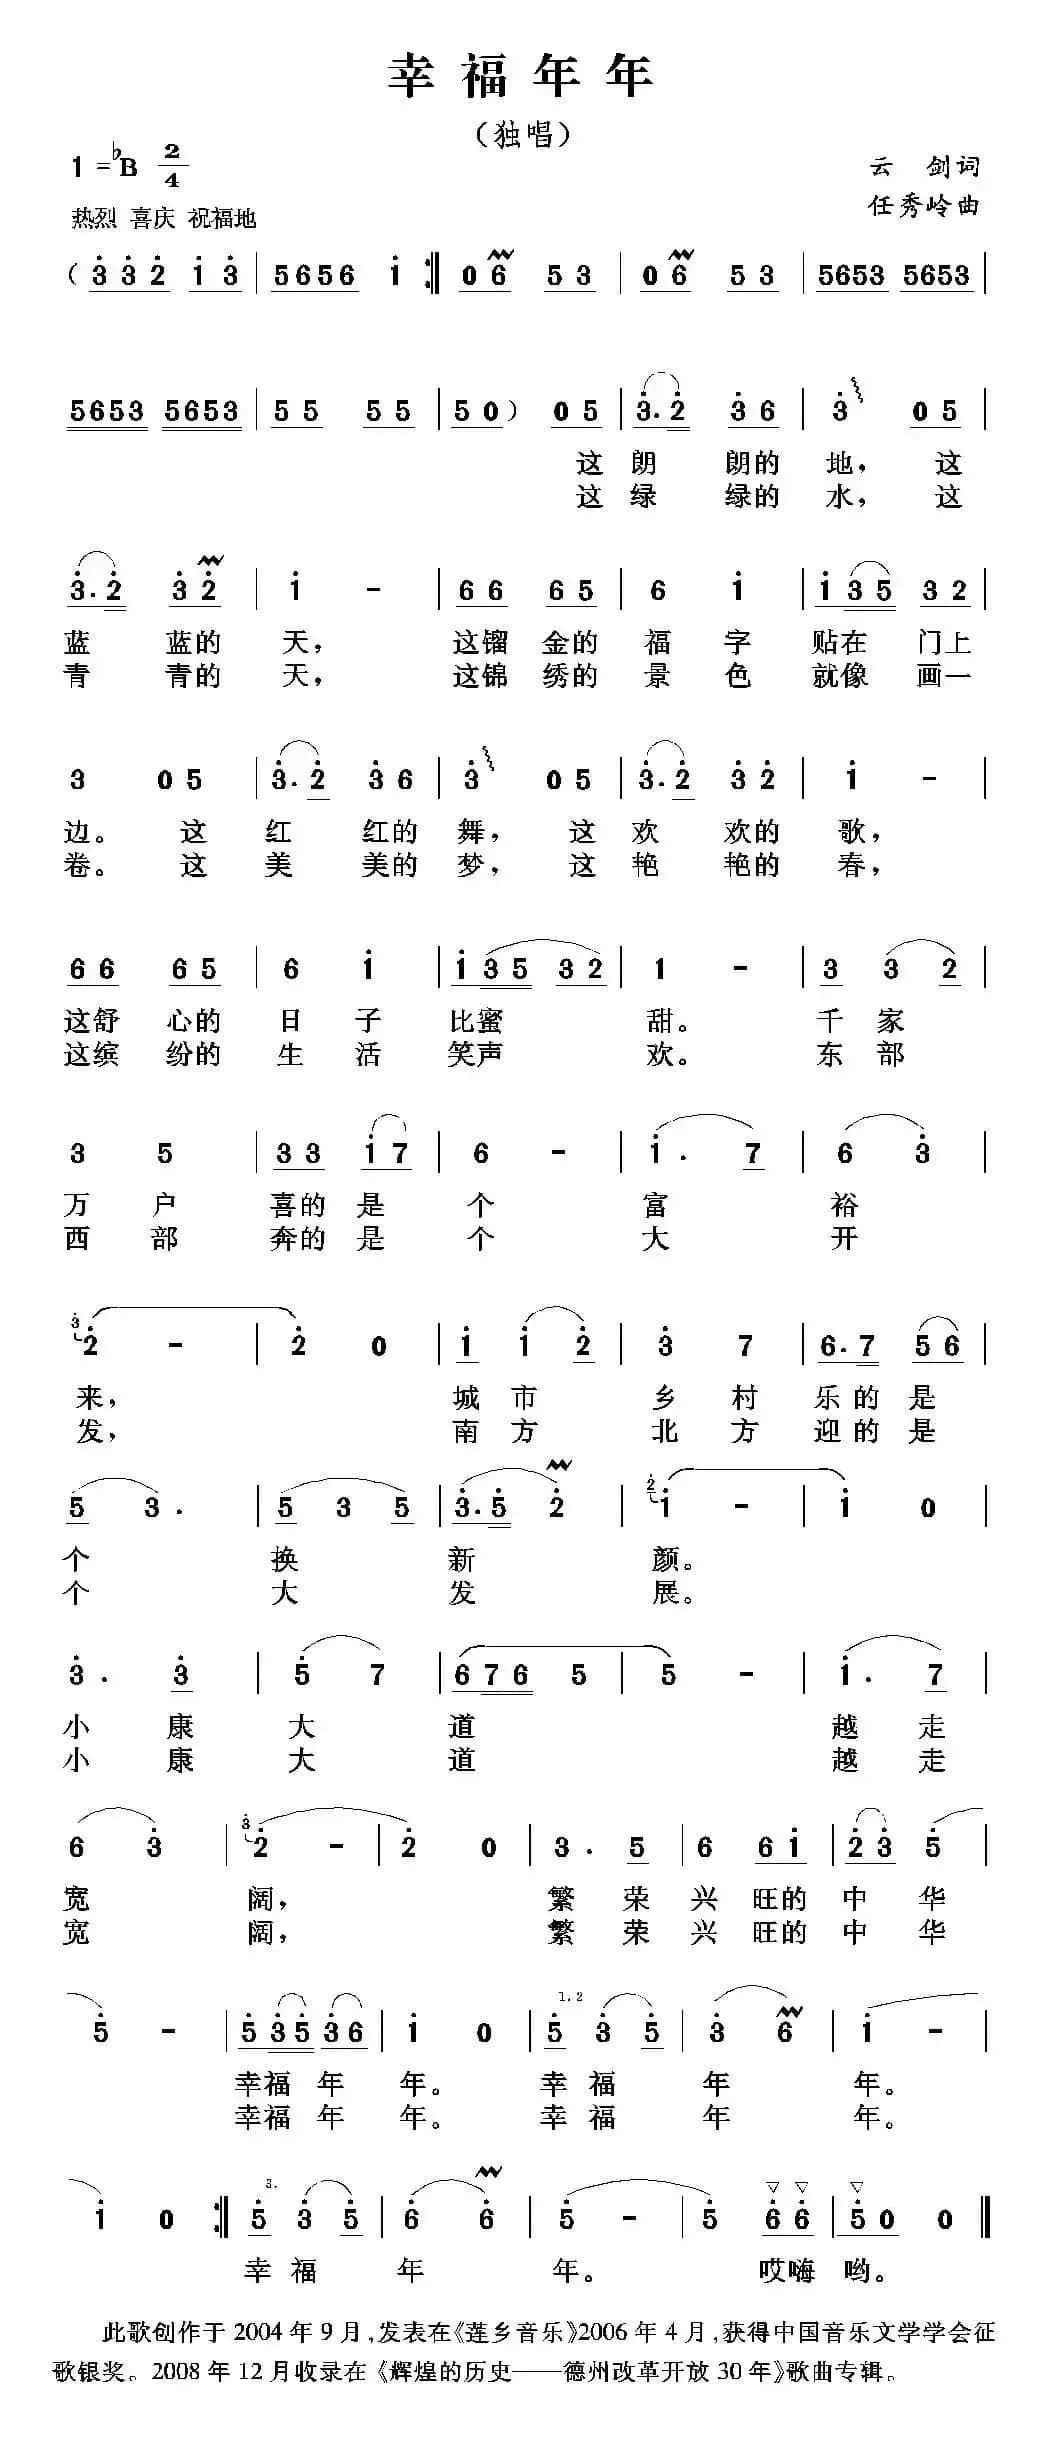 幸福年年
（独唱）
1=♭B 2/4
云 剑词
热烈 喜庆 祝福地
任秀岭曲
( 3 3 2 1 3 | 5656 1 :‖ 0 6 5 3 | 0 6 5 3 | 5653 5653 |
5653 5653 | 5 5 5 5 | 5 0 ) 0 5 | 3. 2 3 6 | 3 0 5 |
这 朗 朗的 地， 这
这 绿 绿的 水， 这
3. 2 3 2 | 1 - | 6 6 6 5 | 6 1 | 1 3 5 3 2 |
蓝 蓝的 天， 这镏 金的 福 字 贴在 门上
青 青的 天， 这锦 绣的 景 色 就像 画一
3 0 5 | 3. 2 3 6 | 3 0 5 | 3. 2 3 2 | 1 - |
边。 这 红 红的 舞， 这 欢 欢的 歌，
卷。 这 美 美的 梦， 这 艳 艳的 春，
6 6 6 5 | 6 1 | 1 3 5 3 2 | 1 - | 3 3 2 |
这舒 心的 日 子 比蜜 甜。 千 家
这缤 纷的 生 活 笑声 欢。 东 部
3 5 | 3 3 1 7 | 6 - | 1. 7 | 6 3 |
万 户 喜的 是 个 富 裕
西 部 奔的 是 个 大 开
3 2 - | 2 0 | 1 1 2 | 3 7 | 6. 7 5 6 |
来， 城 市 乡 村 乐 的 是
发， 南 方 北 方 迎 的 是
5 3. | 5 3 5 | 3. 5 2 | 2 1 - | 1 0 |
个 换 新 颜。
个 大 发 展。
3. 3 | 5 7 | 6 7 6 5 | 5 - | 1. 7 |
小 康 大 道 越 走
小 康 大 道 越 走
6 3 | 3 2 - | 2 0 | 3. 5 | 6 6 1 | 2 3 5 |
宽 阔， 繁 荣 兴 旺的 中 华
宽 阔， 繁 荣 兴 旺的 中 华
1.2
5 - | 5 3 5 3 6 | 1 0 | 5 3 5 | 3 6 | 1 - |
幸福 年 年。 幸 福 年 年。
幸福 年 年。 幸 福 年 年。
3.
1 0 :‖ 5 3 5 | 6 6 | 5 - | 5 6 6 | 5 0 0 ‖
幸 福 年 年。 哎嗨 哟。
此歌创作于 2004 年 9 月，发表在《莲乡音乐》2006 年 4 月，获得中国音乐文学学会征
歌银奖。2008 年 12 月收录在《辉煌的历史——德州改革开放 30 年》歌曲专辑。